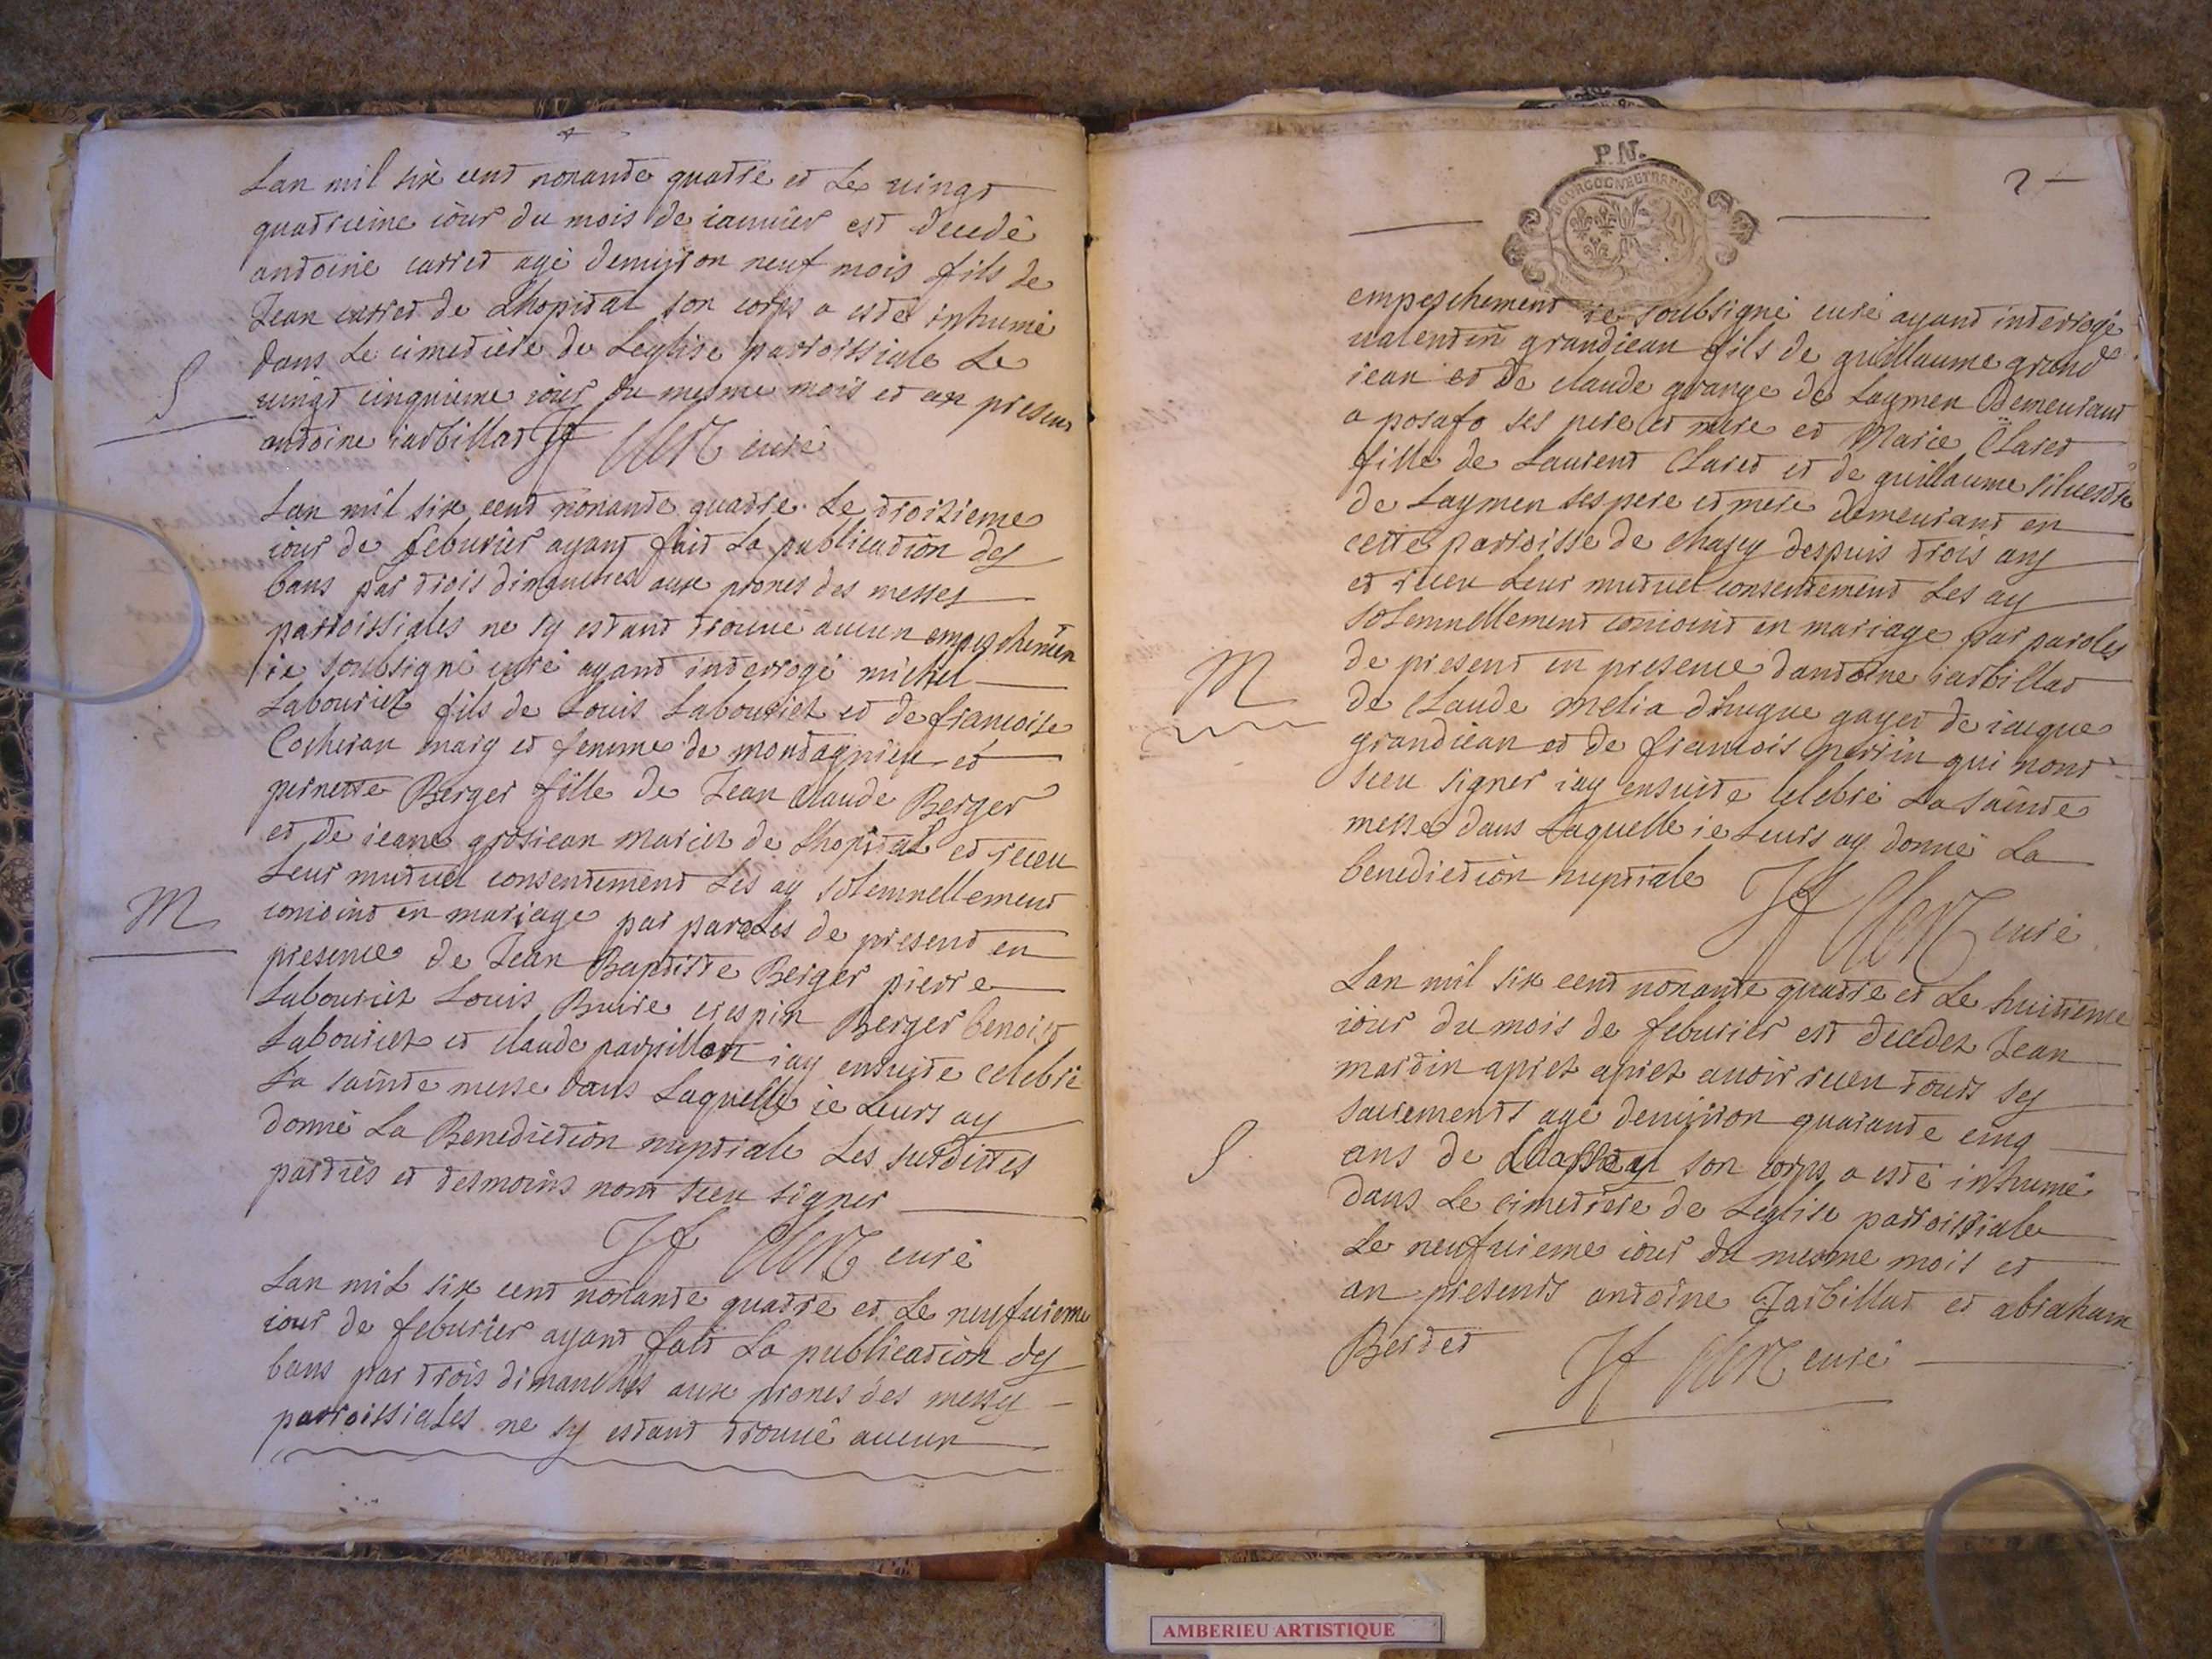 Lan mil six cent nonante quatre et Le vingt
quatrieme iour du mois de ianuier est decedé
antoine carret agé denuiron neuf mois fils de
Jean carret de Lhopital son corps a esté inhumé
dans Le cimetiere de Leglise parroissiale Le
S
vingt cinquieme iour du mesme mois et an presens
antoine iarbillat curé
Lan mil six cent nonante quatre Le troisieme
iour de feburier ayant fait La publication des
bans par trois dimanches aux prones des messes
parroissiales ne sy estant trouué aucun empeschemen
ie soubsigné curé ayant interrogé michel
Labouriez fils de Louis Labouriez et de francoise
Cocheran mary et femme de montagnieu et
pernette Berger fille de Jean Claude Berger
et de ieane grosiean mariez de Lhopital et receu
Leur mutuel consentement Les ay solemnellement
M
conioint en mariage par paroles de present en
presence de Jean Baptiste Berger pierre
Labouriez Louis Buire crespin Berger benoist
Labouriez et claude parpillon iay ensuite celebré
La sainte messe dans Laquelle ie Leurs ay
donné La Benediction nuptiale Les susdittes
parties et tesmoins nont sceu signer
curé
Lan mil six cent nonante quatre et Le neufuieme
iour de feburier ayant fait La publication des
bans par trois dimanches aux prones des messes
parroissiales ne sy estant trouué aucun
P.N.
2
empeschement ie soubsigné curé ayant interrogé
valentin grandiean fils de guillaume grand
iean et de claude grange de Laymen demeurant
a posafo ses pere et mere et Marie Claret
fille de Laurent Claret et de guillaume siluestre
de Laymen ses pere et mere demeurant en
cette parroisse de chasey despuis trois ans
et receu Leur mutuel consentement Les ay
solemnellement conioint en mariage par paroles
M
de present en presence dantoine iarbillat
de Claude melia dhugue gayet de iacque
grandiean et de francois perrin qui nont
sceu signer iay ensuite celebré La sainte
messe dans Laquelle ie Leurs ay donné La
benediction nuptiale
curé
Lan mil six cent nonante quatre et Le huitieme
iour du mois de feburier est decedez Jean
martin apres auoir receu touts ses
sacrements agé denuiron quarante cinq
S
ans de son corps a esté inhumé
dans Le cimetiere de Leglise parroissiale
Le neufuieme iour du mesme mois et
an presents antoine Jarbillat et abraham
Bertet curé
AMBERIEU ARTISTIQUE